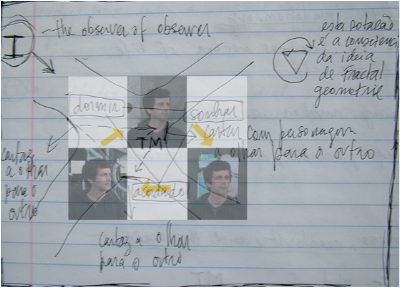 I
- the observer of observer
esta rotação
é a consciência
da ideia
de fractal
geometrie
dormir
sonhar
TM
cartaz com personagem
a olhar para o outro
cartaz
a olhar
para o
outro
cartaz a olhar
para o outro